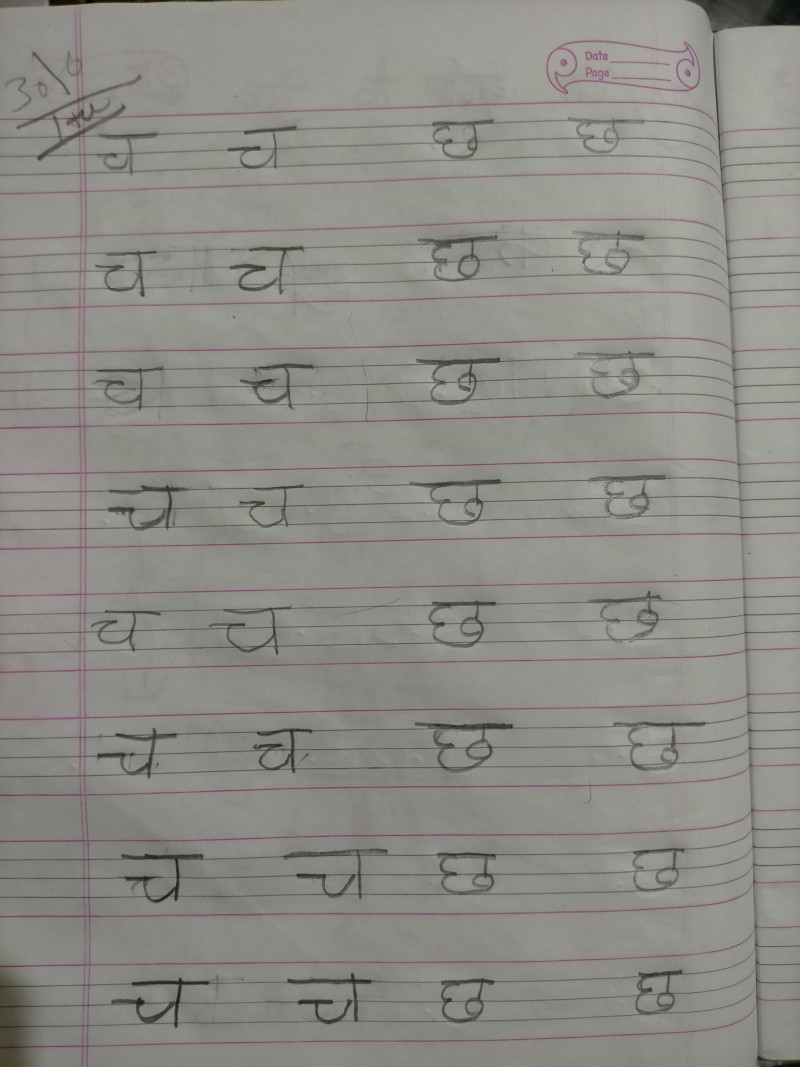 Date
Page
च च छ छ
च च छ छ
च च छ छ
च च छ छ
च च छ छ
च च छ छ
च च छ छ
च च छ छ